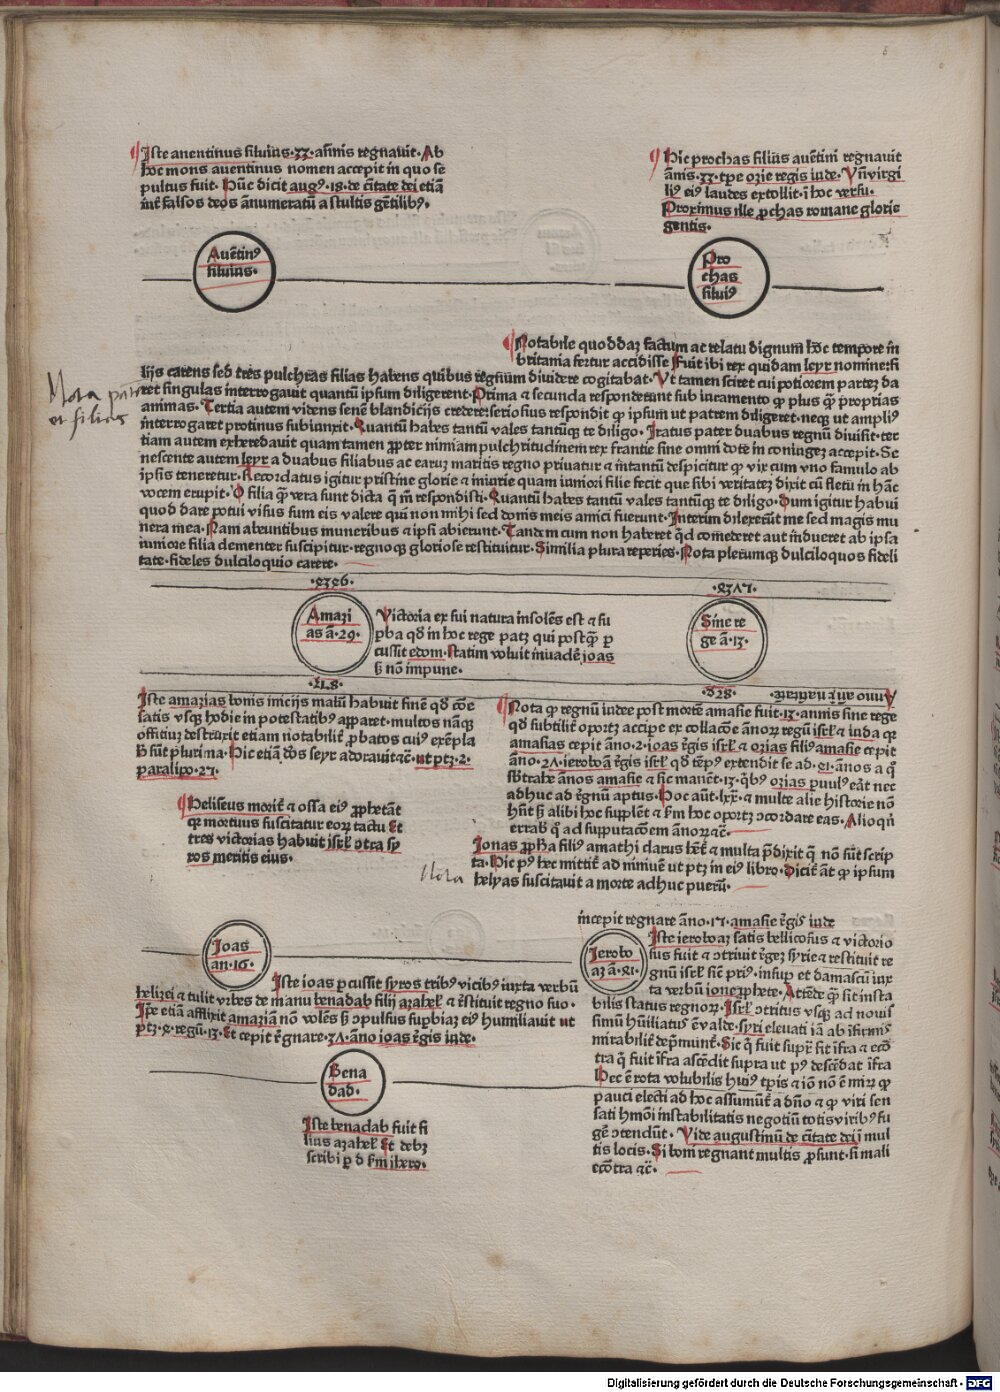 Iste auentinus siluius·33·ānis regnauit·Ab
hoc mons auentinus nomen accepit in quo se
pultus fuit·Hūc dicit augꝰ·18·de ciuitate dei etiā
int̄ falsos deos ānumeratū a stultis gētilibꝰ·
Hic prochas filius auētini regnauit
ānis·33·tꝑe ozie regis iude·Vn̄ virgi
liꝰ eiꝰ laudes extollit·i hoc versu·
Proximus ille ꝓchas romane glorie
gentis·
Auētinꝰ
siluius·
Pro
chas
siluiꝰ
Notabile quoddaꝫ factum ac relatu dignum hoc tempore in
britania fertur accidisse Fuit ibi rex quidam leyr nomine:fi
lijs carens sed tres pulchras filias habens quibus regnum diuidere cogitabat·Vt tamen sciret cui potiorem parteꝫ da
ret singulas interrogauit quantū ipsum diligerent·Prima ⁊ secunda responderunt sub iuramento ꝙ plus q̄ꝫ proprias
animas·Tertia autem videns senē blandicijs credere:seriosius respondit ꝙ ipsum ut patrem diligeret·neqꝫ ut ampliꝰ
interrogaret protinus subiunxit·Quantū habes tantū vales tantūqꝫ te diligo·Iratus pater duabus regnū diuisit·ter
tiam autem exheredauit quam tamen ꝓpter nimiam pulchritudinem rex frantie sine omni dote in coniugeꝫ accepit·Se
nescente autem leyr a duabus filiabus ac earuꝫ maritis regno priuatur ⁊ intantū despicitur ꝙ vix cum vno famulo ab
ipsis teneretur·Recordatus igitur pristine glorie ⁊ iniurie quam iuniori filie fecit que sibi veritateꝫ dixit cū fletu in hāc
vocem erupit·O filia q̄ꝫ vera sunt dicta q̄ m̄ respondisti·Quantū habes tantū vales tantūqꝫ te diligo·Dum igitur habui
quod dare potui visus sum eis valere qui non mihi sed donis meis amici fuerunt·Interim dilexerūt me sed magis mu
nera mea·Nam abeuntibus muneribus ⁊ ipsi abierunt·Tandem cum non haberet qd comederet aut indueret ab ipsa
iuniore filia clementer suscipitur·regnoqꝫ gloriose restituitur·Similia plura reperies·Nota plerumqꝫ dulciloquos fideli
tate·fideles dulciloquio carere·
Nota
et filias
Amazi
as ā·29·
Victoria ex sui natura insolēs est ⁊ su
ꝑba qd in hoc rege patꝫ qui postq̄ꝫ ꝑ
cussit edom·statim voluit inuadē ioas
sꝫ nō impune·
Sine re
ge ā·13·
Iste amazias bonis inicijs malū habuit finē qd cōe
satis vsqꝫ hodie in potestatibꝰ apparet·multos nāqꝫ
offitiuꝫ destruxit etiam notabilit̄ ꝓbatos cuiꝰ exēpla
hꝫ sūt plurima·Hic etiā deos seyr adorauit ⁊c·ut ptꝫ·2·
paralipo·27·
Nota ꝙ regnū iudee post mortē amasie fuit·13·annis sine rege
qd subtilit̄ oportꝫ accipe ex collacōe ānoꝝ regū isrl̄ ⁊ iuda qꝫ
amasias cepit āno·2·ioas r̄gis isrl̄ ⁊ ozias filiꝰ amasie cepit
āno·27·ieroboā r̄gis isrl̄
Heliseus morit̄ ⁊ ossa eiꝰ ꝓphetāt
qꝫ mortuus suscitatur eoꝝ tactu Et
tres victorias habuit isrl̄ ↄtra sy
ros meritis eius·
adhuc ad r̄gnū aptus·Hoc aūt·lxx·⁊ multe alie historie nō
Ionas ꝓph̄a filiꝰ amathi clarus het̄ ⁊ multa p̄dixit q̄ nō sūt scrip
ta·Hic pꝰ hec mittit̄ ad niniuē ut ptꝫ in eiꝰ libro·Dicit̄ āt ꝙ ipsum
helyas suscitauit a morte adhuc puerū·
Nota
Ioas
an·16·
incepit regnare āno·17·amasie r̄gis iude
Ierobo
aꝫ ā·41·
Iste ioas ꝑcussit syros tribꝰ vicibꝰ iuxta verbū
helizei ⁊ tulit vrbes de manu benadab filij azahel ⁊ restituit regno suo·
Ipe etiā afflixit amaziā nō volēs sꝫ ↄpulsus suꝑbiaꝫ eiꝰ humiliauit ut
ptꝫ·4·regū·13·Et cepit r̄gnare·37·āno ioas r̄gis iude·
Iste ieroboaꝫ satis bellicosus ⁊ victorio
sus fuit ⁊ ↄtriuit r̄geꝫ syrie ⁊ restituit re
gnū isrl̄ sic̄ priꝰ·insuꝑ et damascū iux
ta verbū ione ꝓphete·Attēde q̄ꝫ sit insta
bilis status regnoꝝ·Isrl̄ ↄtritus vsqꝫ ad nouis
simū hūiliatus ē valde·syri eleuati iā ab isimis
mirabilit̄ depmunt̄·Sic q̄ fuit supꝫ fit ifra ⁊ ecō
tra q̄ fuit ifra ascēdit supra ut pꝰ descēdat ifra
Hec ē rota volubilis huiꝰ tꝑis ⁊ iō nō ē miꝝ ꝙ
pauci electi ad hoc assumūt̄ a dn̄o ⁊ ꝙ viri sen
sati hmōi instabilitatis negotiū totis viribꝰ fu
gē ↄtendūt·Vide augustinū de ciuitate dei i mul
tis locis·Si boni regnant multis ꝓsunt·si mali
ecōtra ⁊c̄·
Bena
dad·
Iste benadab fuit fi
lius azahel Et debꝫ
scribi ꝑ d ſm ihero·
Digitalisierung gefördert durch die Deutsche Forschungsgemeinschaft - DFG